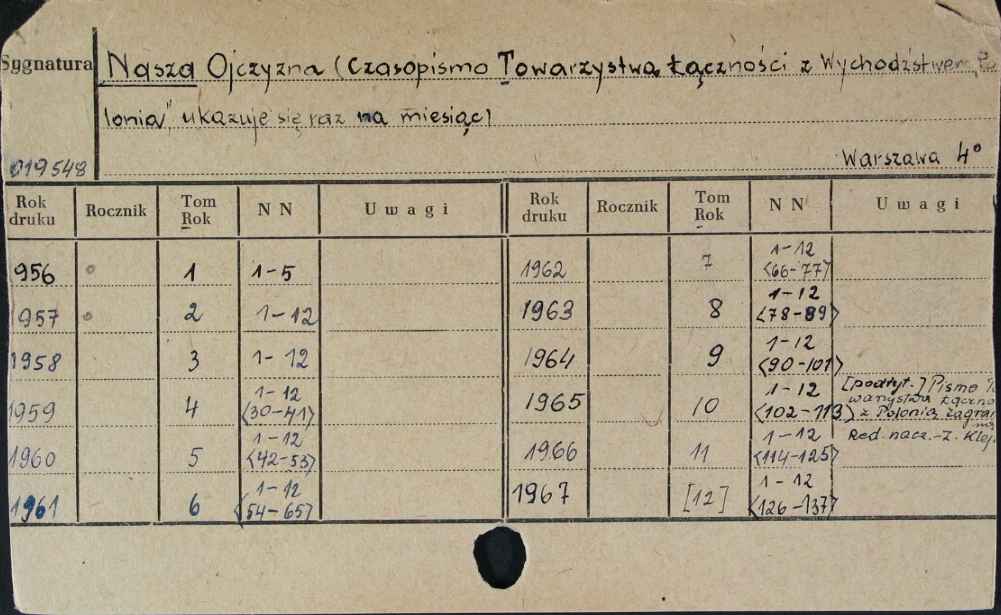 Sygnatura
Nasza Ojczyzna (Czasopismo Towarzystwa Łączności z Wychodźstwem „Po
lonia", ukazuje się raz na miesiąc)
019548
Warszawa 4°
Rok druku Rocznik Tom Rok NN Uwagi Rok druku Rocznik Tom Rok NN Uwagi
956 1 1-5 1962 7 1-12 <66-77>
1957 2 1-12 1963 8 1-12 <78-89>
1958 3 1-12 1964 9 1-12 <90-101>
1959 4 1-12 <30-41> 1965 10 1-12 <102-113> [podtyt.] Pismo To
warzystwa Łączno
z Polonią Zagran
1960 5 1-12 <42-53> 1966 11 1-12 <114-125> Red. nacz.-Z. Klej
1961 6 1-12 <54-65> 1967 [12] 1-12 <126-137>